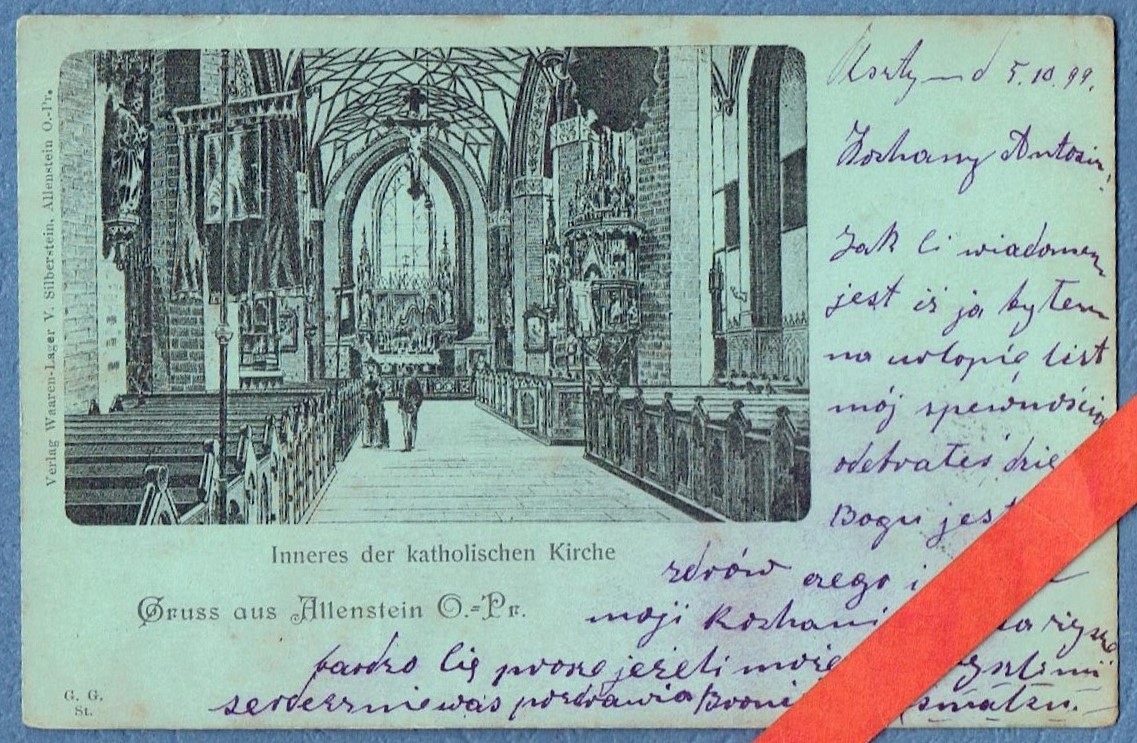 Verlag Waaren-Lager V. Silberstein, Allenstein O.-Pr.
Inneres der katholischen Kirche
Gruss aus Allenstein O.-Pr.
G. G.
St.
5.10.99.
Kochany Antosiu!
Jak Ci wiadomem
jest iż ja byłem
na urlopie list
mój spewnością
odebrałeś
Bogu jest
zdrów czego i
moji Kochani
bardzo Cię proszę jeżeli może
serdecznie was pozdrawia